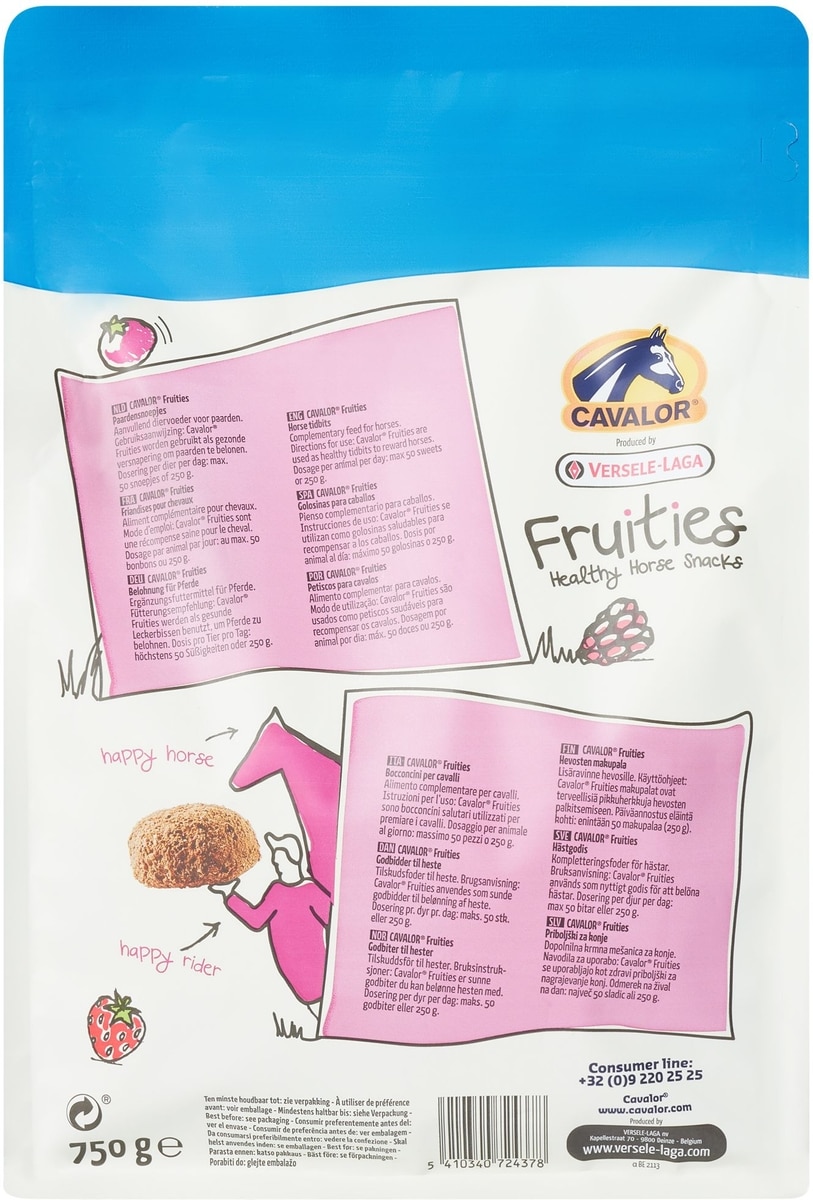 NLD CAVALOR® Fruities
Paardensnoepjes
Aanvullend diervoeder voor paarden.
Gebruiksaanwijzing: Cavalor®
Fruities worden gebruikt als gezonde
versnapering om paarden te belonen.
Dosering per dier per dag: max.
50 snoepjes of 250 g.
FRA CAVALOR® Fruities
Friandises pour chevaux
Aliment complémentaire pour chevaux.
Mode d'emploi: Cavalor® Fruities sont
une récompense saine pour le cheval.
Dosage par animal par jour: au max. 50
bonbons ou 250 g.
DEU CAVALOR® Fruities
Belohnung für Pferde
Ergänzungsfuttermittel für Pferde.
Fütterungsempfehlung: Cavalor®
Fruities werden als gesunde
Leckerbissen benutzt, um Pferde zu
belohnen. Dosis pro Tier pro Tag:
höchstens 50 Süßigkeiten oder 250 g.
ENG CAVALOR® Fruities
Horse tidbits
Complementary feed for horses.
Directions for use: Cavalor® Fruities are
used as healthy tidbits to reward horses.
Dosage per animal per day: max 50 sweets
or 250 g.
SPA CAVALOR® Fruities
Golosinas para caballos
Pienso complementario para caballos.
Instrucciones de uso: Cavalor® Fruities se
utilizan como golosinas saludables para
recompensar a los caballos. Dosis por
animal al día: máximo 50 golosinas o 250 g.
POR CAVALOR® Fruities
Petiscos para cavalos
Alimento complementar para cavalos.
Modo de utilização: Cavalor® Fruities são
usados como petiscos saudáveis para
recompensar os cavalos. Dosagem por
animal por dia: máx. 50 doces ou 250 g.
CAVALOR®
Produced by
VERSELE-LAGA
Fruities
Healthy Horse Snacks
happy horse
happy rider
ITA CAVALOR® Fruities
Bocconcini per cavalli
Alimento complementare per cavalli.
Istruzioni per l'uso: Cavalor® Fruities
sono bocconcini salutari utilizzati per
premiare i cavalli. Dosaggio per animale
al giorno: massimo 50 pezzi o 250 g.
DAN CAVALOR® Fruities
Godbidder til heste
Tilskudsfoder til heste. Brugsanvisning:
Cavalor® Fruities anvendes som sunde
godbidder til belønning af heste.
Dosering pr. dyr pr. dag: maks. 50 stk.
eller 250 g.
NOR CAVALOR® Fruities
Godbiter til hester
Tilskuddsfôr til hester. Bruksinstruk-
sjoner: Cavalor® Fruities er sunne
godbiter du kan belønne hesten med.
Dosering per dyr per dag: maks. 50
godbiter eller 250 g.
FIN CAVALOR® Fruities
Hevosten makupala
Lisäravinne hevosille. Käyttöohjeet:
Cavalor® Fruities makupalat ovat
terveellisiä pikkuherkkuja hevosten
palkitsemiseen. Päiväannostus eläintä
kohti: enintään 50 makupalaa (250 g).
SVE CAVALOR® Fruities
Hästgodis
Kompletteringsfoder för hästar.
Bruksanvisning: Cavalor® Fruities
används som nyttigt godis för att belöna
hästar. Dosering per djur per dag:
max 50 bitar eller 250 g.
SLV CAVALOR® Fruities
Priboljški za konje
Dopolnilna krmna mešanica za konje.
Navodila za uporabo: Cavalor® Fruities
se uporabljajo kot zdravi priboljški za
nagrajevanje konj. Odmerek na žival
na dan: največ 50 sladic ali 250 g.
®
750 g e
Ten minste houdbaar tot: zie verpakking - À utiliser de préférence
avant: voir emballage - Mindestens haltbar bis: siehe Verpackung -
Best before: see packaging - Consumir preferentemente antes del:
ver el envase - Consumir de preferência antes de: ver embalagem -
Da consumarsi preferibilmente entro: vedere la confezione - Skal
helst anvendes inden: se emballagen - Best før: se pakningen -
Parasta ennen: katso pakkaus - Bäst före: se förpackningen -
Porabiti do: glejte embalažo
5 410340 724378
Consumer line:
+32 (0)9 220 25 25
Cavalor®
www.cavalor.com
Produced by
VERSELE-LAGA nv
Kapellestraat 70 - 9800 Deinze - Belgium
www.versele-laga.com
α BE 2113